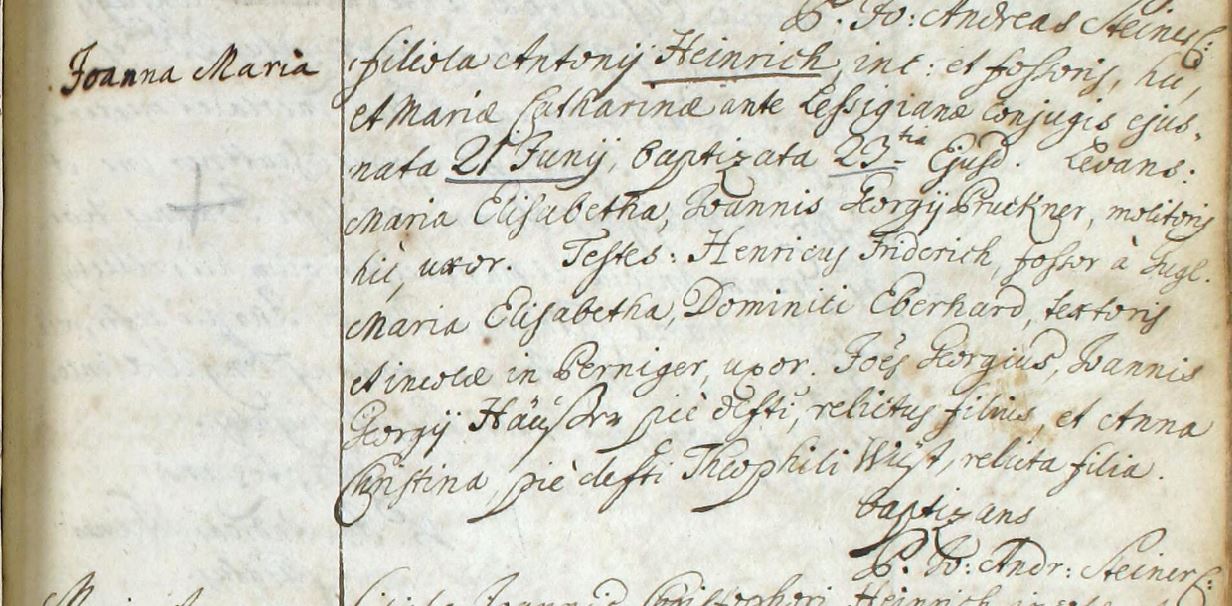 P. Jo: Andreas Steiner C:
Joanna Maria
filiola Antonij Heinrich, inc: et fossoris, hic,
et Mariæ Catharinæ ante Lessigianæ conjugis ejus.
nata 21 Junij, baptizata 23tia Ejusd. Levans:
Maria Elisabetha, Joannis Georgij Pruckner, molitoris
hic, uxor. Testes: Henricus Friderich, fossor à
Maria Elisabetha, Dominici Eberhard, textoris
et incolæ in Perniger, uxor. Joes Georgius, Joannis
Georgij piè defti, relictus filius, et Anna
Christina, piè defti Theophili Wüst, relicta filia.
baptizans
P. Jo: Andr: Steiner C:
Maria
filiola Joannis Christophori Heinrich